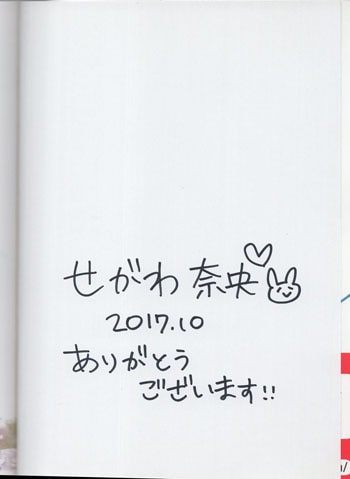 せがわ奈央♡
2017.10
ありがとう
ございます!!